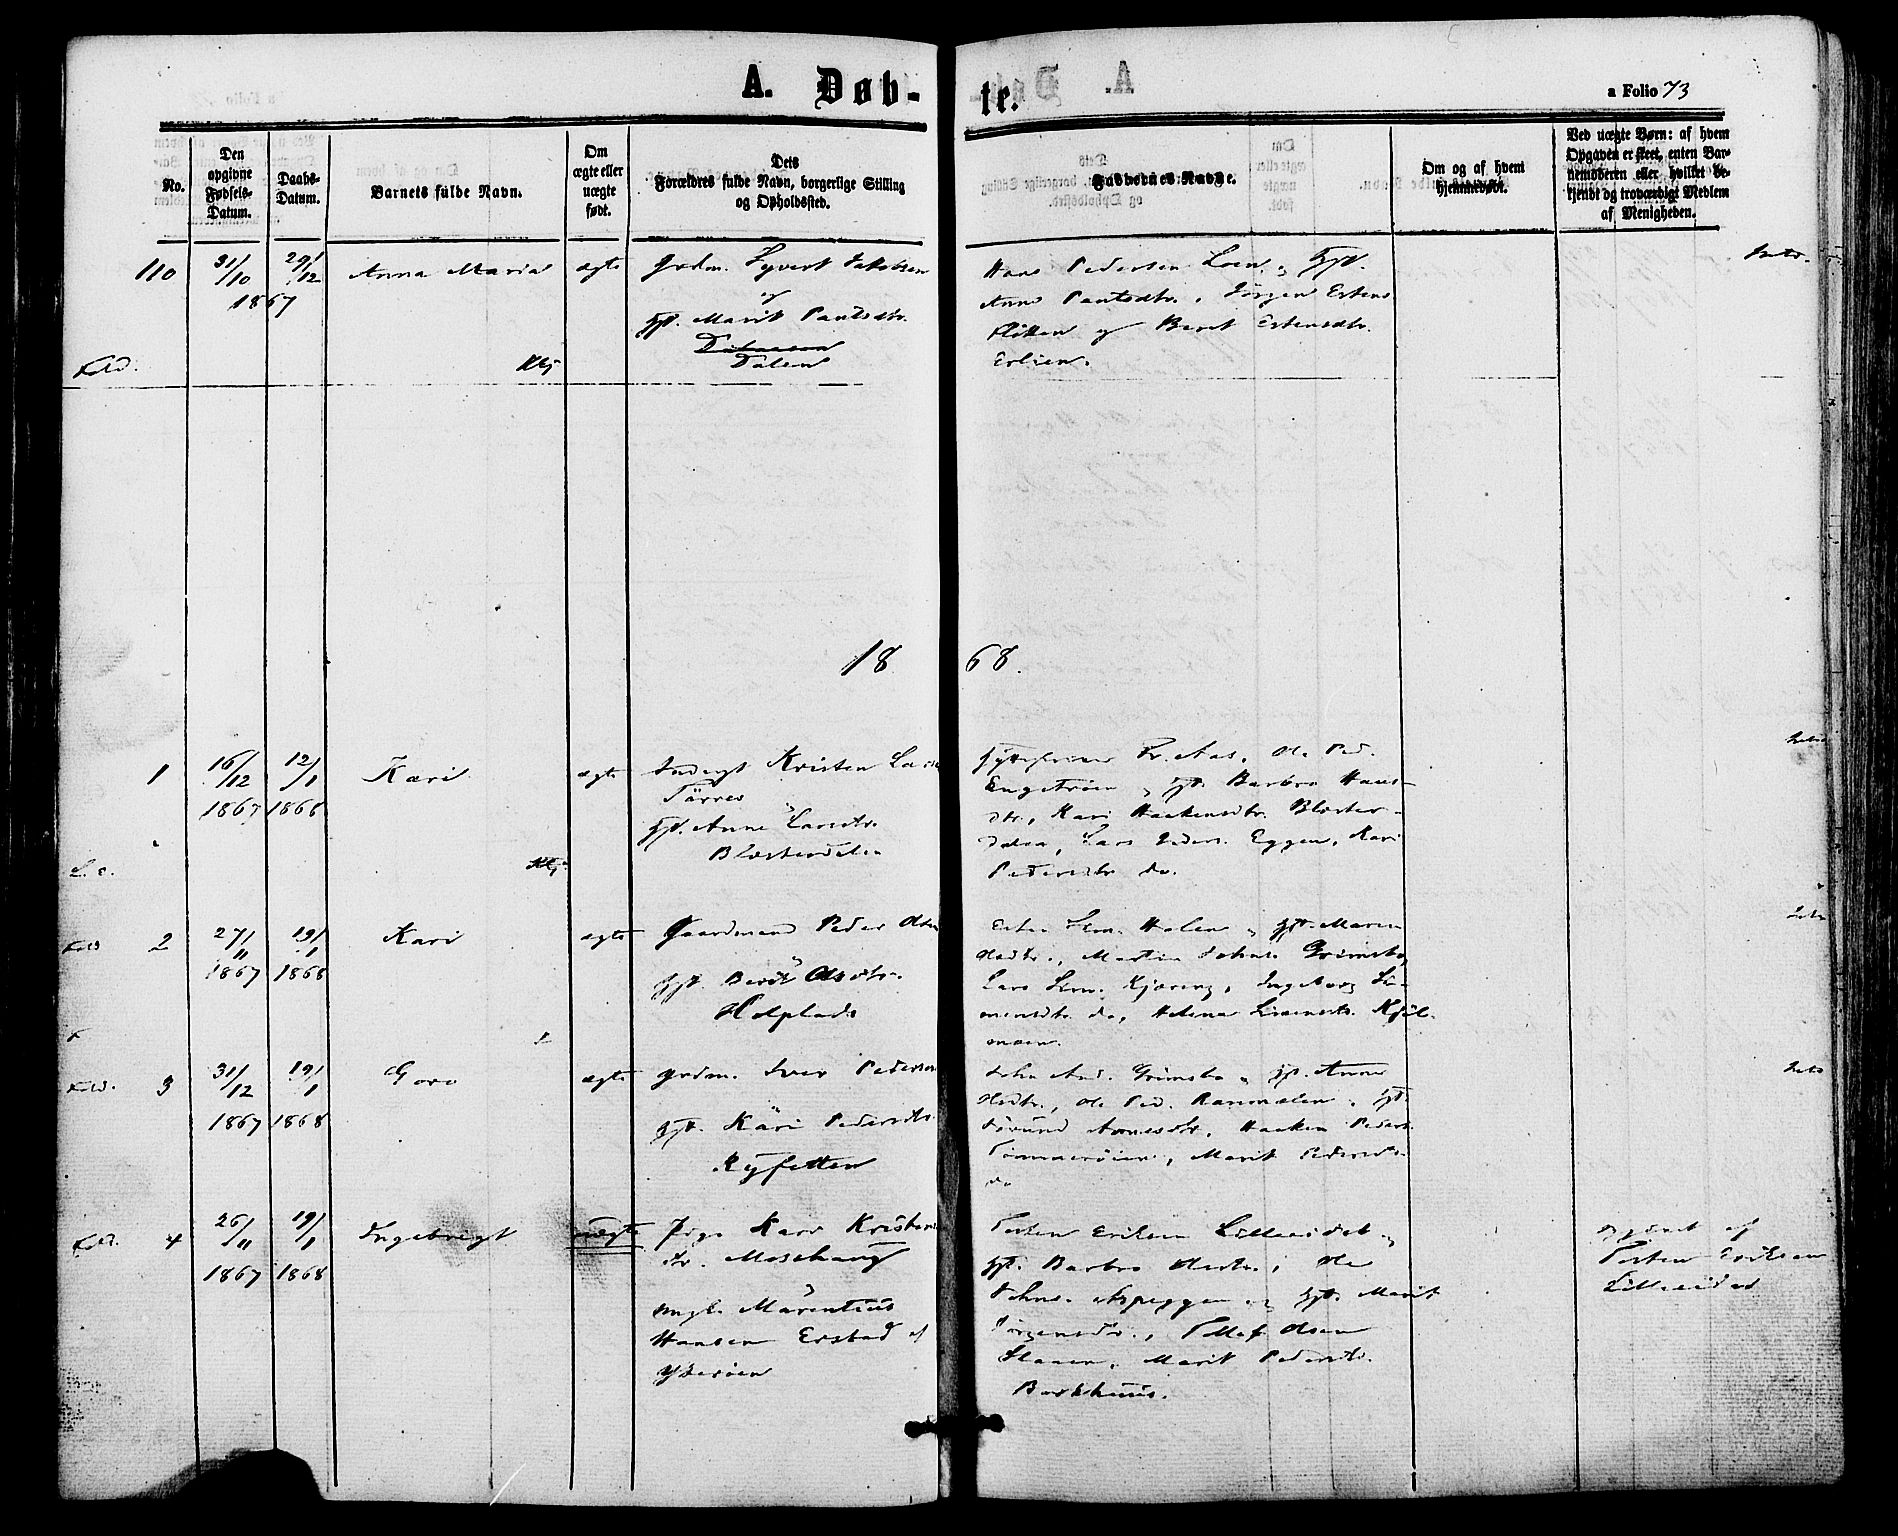 A. Døb-
te.
a Folio 73
No.
Den
opgivne
Fødsels-
Datum.
Daabs-
Datum.
Barnets fulde Navn.
Om
ægte eller
uægte
født.
Dets
Forældres fulde Navn, borgerlige Stilling
og Opholdssted.
Faddernes Navne.
Om og af hvem
hjemmedøbt.
Ved uægte Børn: af hvem
Opgaven er skeet, enten Bar-
nemoderen eller hvilket be-
kjendt og troværdigt Medlem
af Menigheden.
110
31/10
1867
29/12
Anna Maria
ægte
Grdm. Syvert Jakobsen
og
Hst. Marit Paulsdtr.
Dalen
Fold.
Hans Pedersen Loen,
Anne Paulsdtr., Jørgen Estens
Flitten og Berit Estensdtr.
Erlien.
18 68.
1
16/12
1867
12/1
1868
Kari
ægte
Indergt Kristen Lars
Tørres
Hst. Anne Larsdtr.
Blæsterdalen
Aas, Ole Ped.
Engstrøen Barbro Hans-
dtr., Kari Haakensdtr. Blæster-
dalen, Lars Eggen, Kari
Pedersdtr do.
Fold
2
27/11
1867
19/1
1868
Kari
ægte
Gaardmand Peder Olsen
Hst. Berit Olsdtr.
Holplads
Halen Maren
Olsdtr., Martin Johns. Grimsbo,
Lars Kjæreng, Ingeborg Si-
mensdtr. do, Helena Simensdtr. Kjøl-
moen.
Fold.
3
31/12
1867
19/1
1868
Goro
ægte
Grdm. Iver Pederson
Hst. Kari Pedersdtr.
Ryfetten
John And. Grimsbo Anne
Olsdtr., Ole Ped. Ranmælen,
Jørund Arnesdtr., Haaken Peders.
Tømmerøien, Marit Pedersdtr.
do
Fold.
4
26/11
1867
19/1
1868
Ingebrigt
uægte
Pige Kari Kristens
dtr. Moshaug
ungk. Marentius
Hansen Erstad af
Yterøen
Torsten Eriksen Lilleeidet
Hst. Barbro Olsdtr., Ole
Johns. Aspeggen Hst. Marit
Jørgensdtr., Tollef Olsen
Sloaen, Marit Pedersdtr.
Barkhuus.
opgivet af
Torsten Eriksen
Lilleeidet